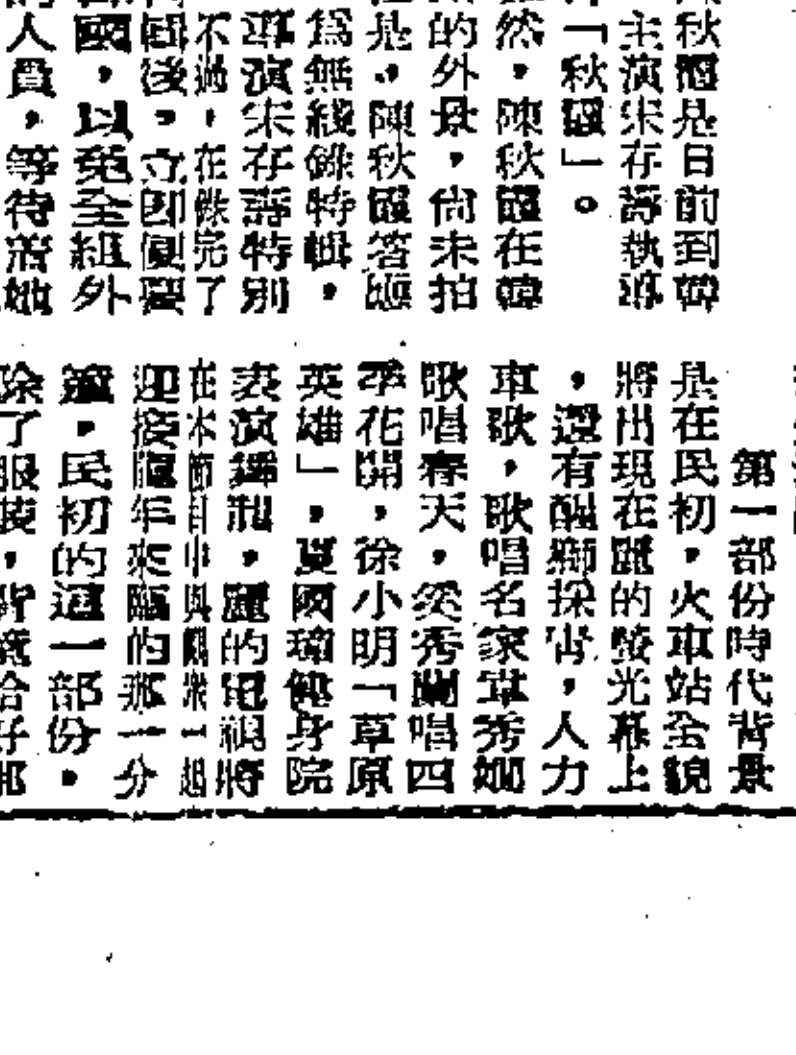 秋霞是日前到韓
主演宋存壽執導
「秋霞」。
然，陳秋霞在韓
的外景，尚未拍
是，陳秋霞答應
為無綫錄特輯，
導演宋存壽特別
不過，在做完了
後，立即便要
國，以免全組外
人員，等待着她
第一部份時代背景
是在民初，火車站全貌
將出現在麗的螢光幕上
，還有醒獅採青，人力
車歌，歌唱名家韋秀嫻
歌唱春天，奚秀蘭唱四
季花開，徐小明「草原
英雄」，夏國璋健身院
表演舞獅，麗的電視將
在本節目中與觀衆一起
迎接龍年來臨的那一分
鐘，民初的這一部份。
除了服裝，背境恰好那